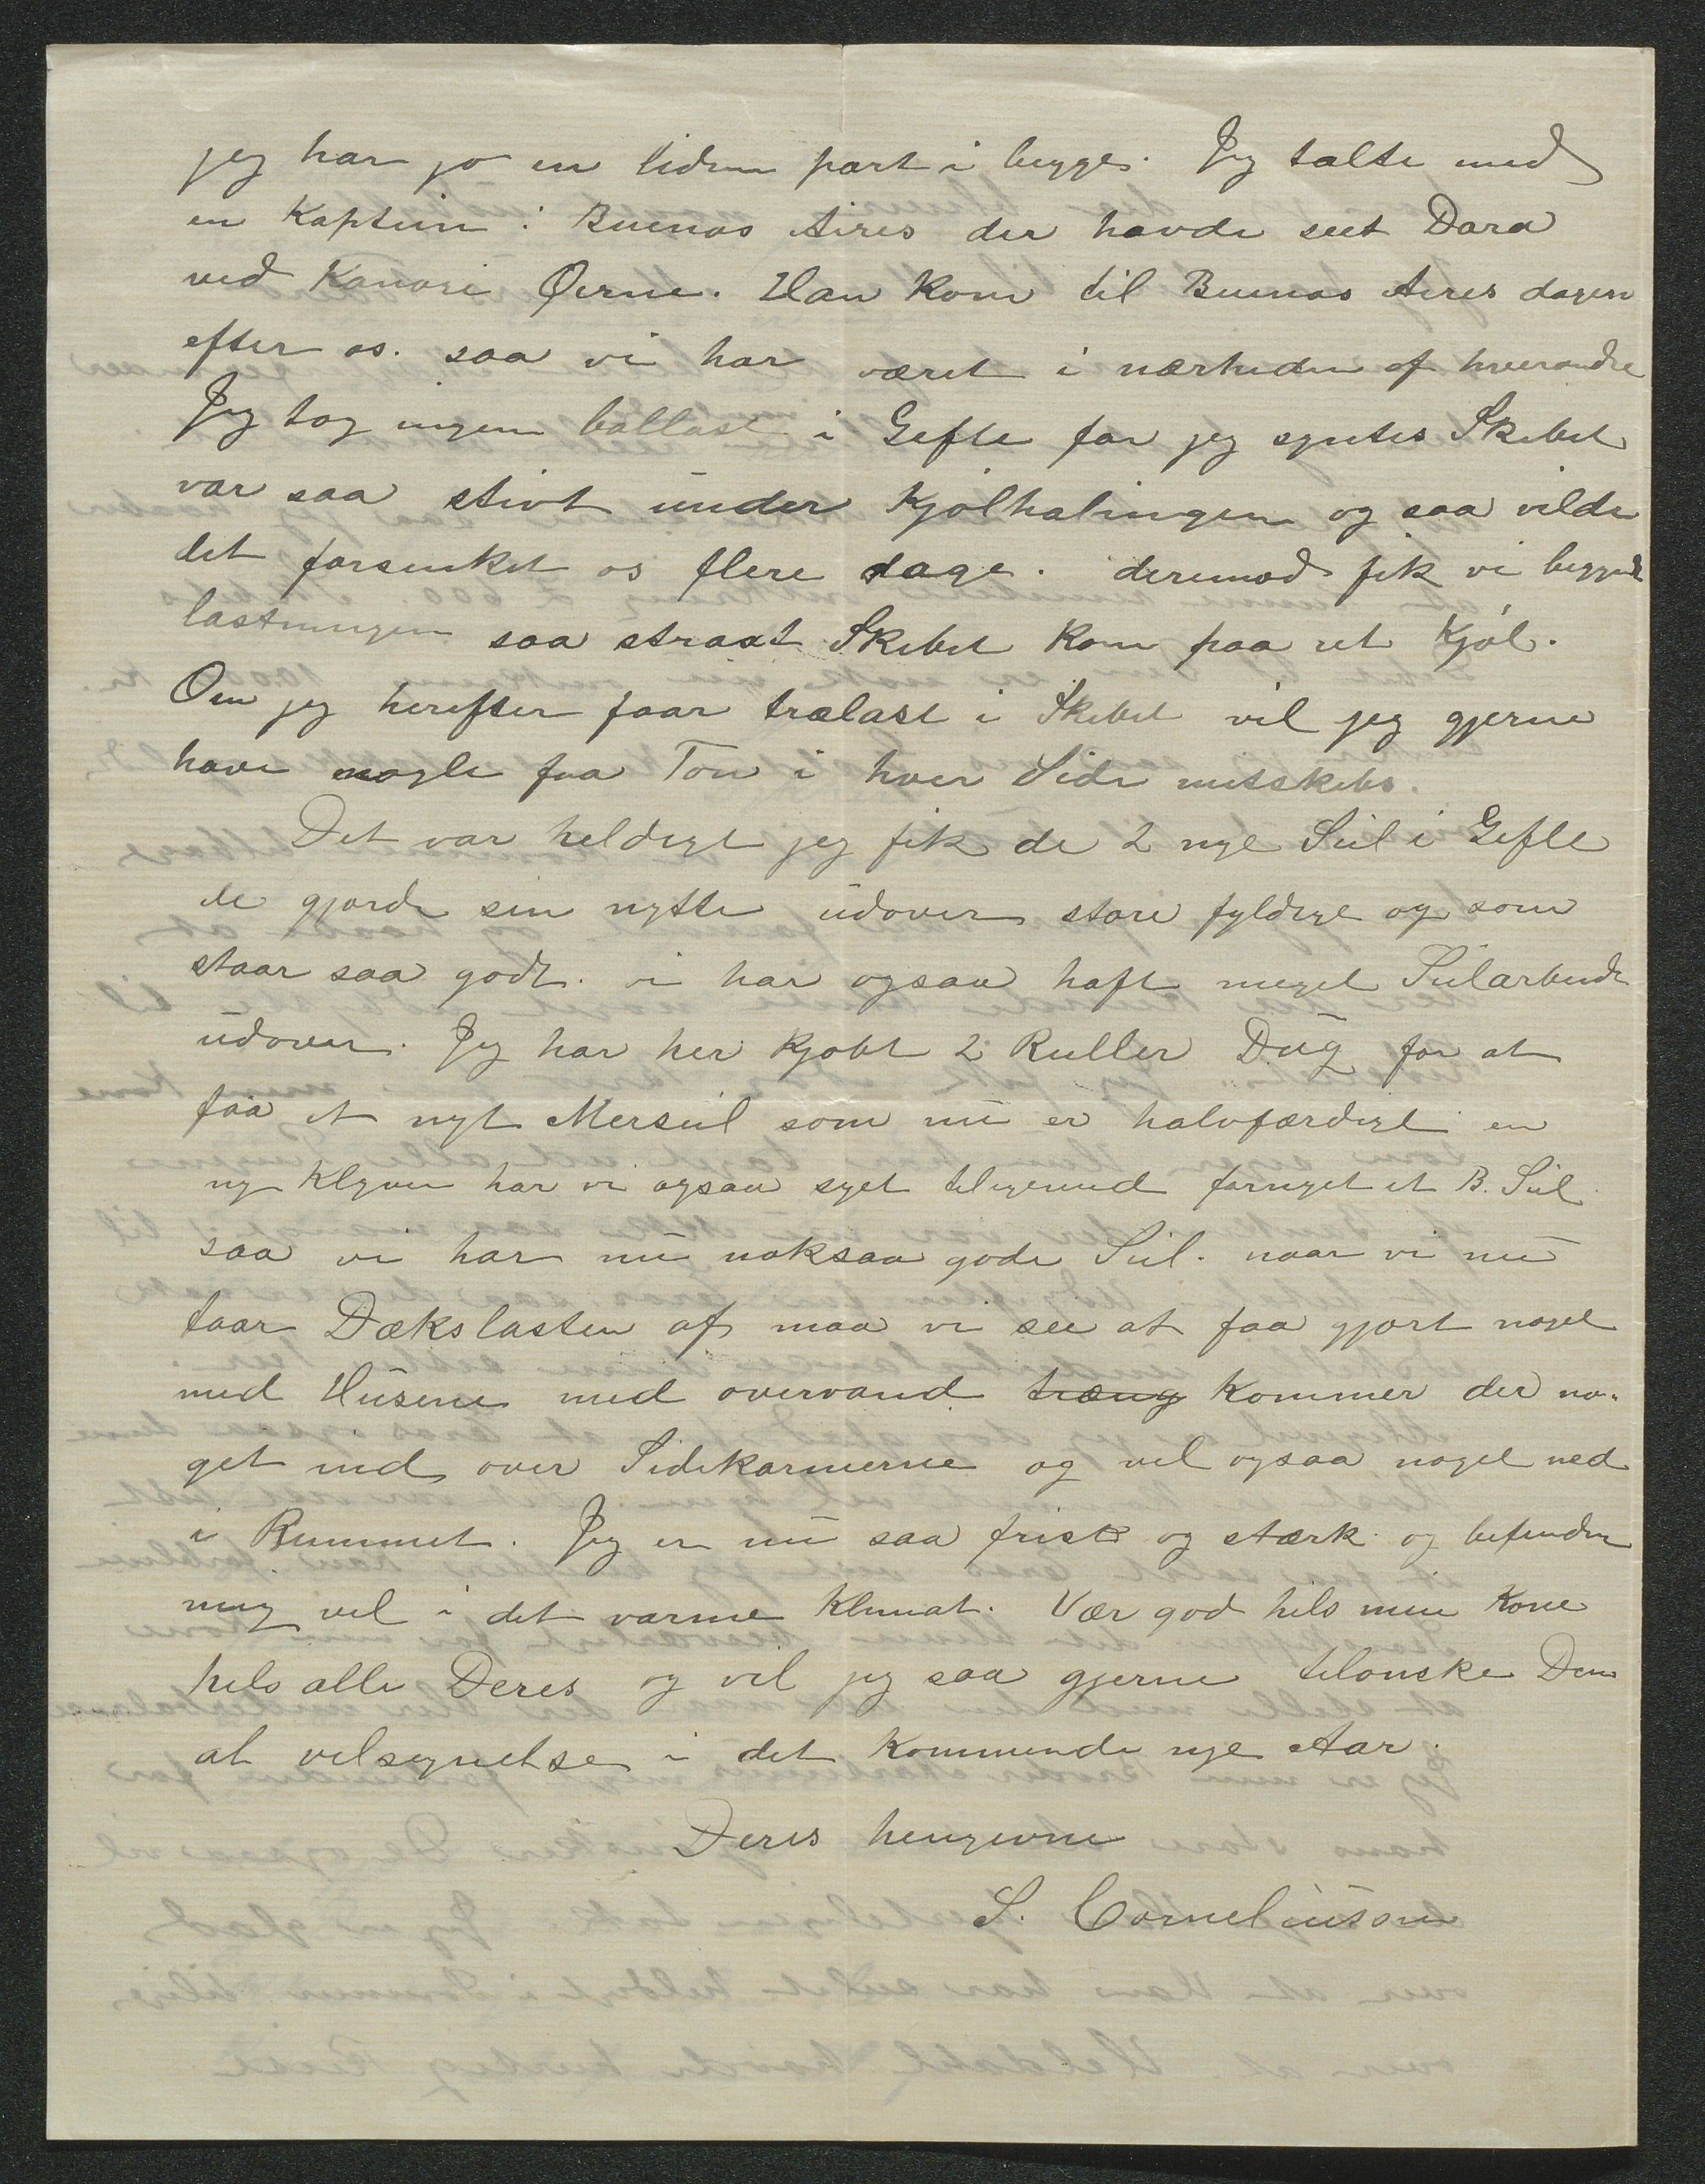 jeg har jo en liden part i begge. Jeg talte med
en Kaptein i Buenos Aires der havde seet Dara
ved Kanari Øerne. Han kom til Buenos Aires dagen
efter os. saa vi har været i nærheden af hverandre
Jeg tog ingen ballast i Gefle for jeg syntes Skibet
var saa stivt under Kjølhalingen og saa vilde
det forsinket os flere dage. derimod fik vi begynde
lastningen saa straxt Skibet kom paa ret Kjøl.
Om jeg herefter faar trælast i Skibet vil jeg gjerne
have nogle faa Ton i hver Side mitskibs.
Det var heldigt jeg fik de 2 nye Seil i Gefle
de gjorde sin nytte udover store fyldige og som
staar saa godt. vi har ogsaa haft meget Seilarbeide
udover. Jeg har her kjøbt 2 Ruller Dug for at
faa et nyt Merseil som nu er halvfærdigt en
ny Klyver har vi ogsaa syet tiligemed fornyet et B. Seil
saa vi har nu noksaa gode Seil. naar vi nu
faar Dækslasten af maa vi see at faa gjort noget
med Husene med overvand træng kommer der no-
get ind over Sidekarmerne og vel ogsaa noget ned
i Rummet. Jeg er nu saa frisk og stærk og befinder
mig vel i det varme Klimat. Vær god hils min Kone
hils alle Deres og vil jeg saa gjerne tilønske Dem
al velsignelse i det kommende nye Aar.
Deres hengivne
S. Corneliussen